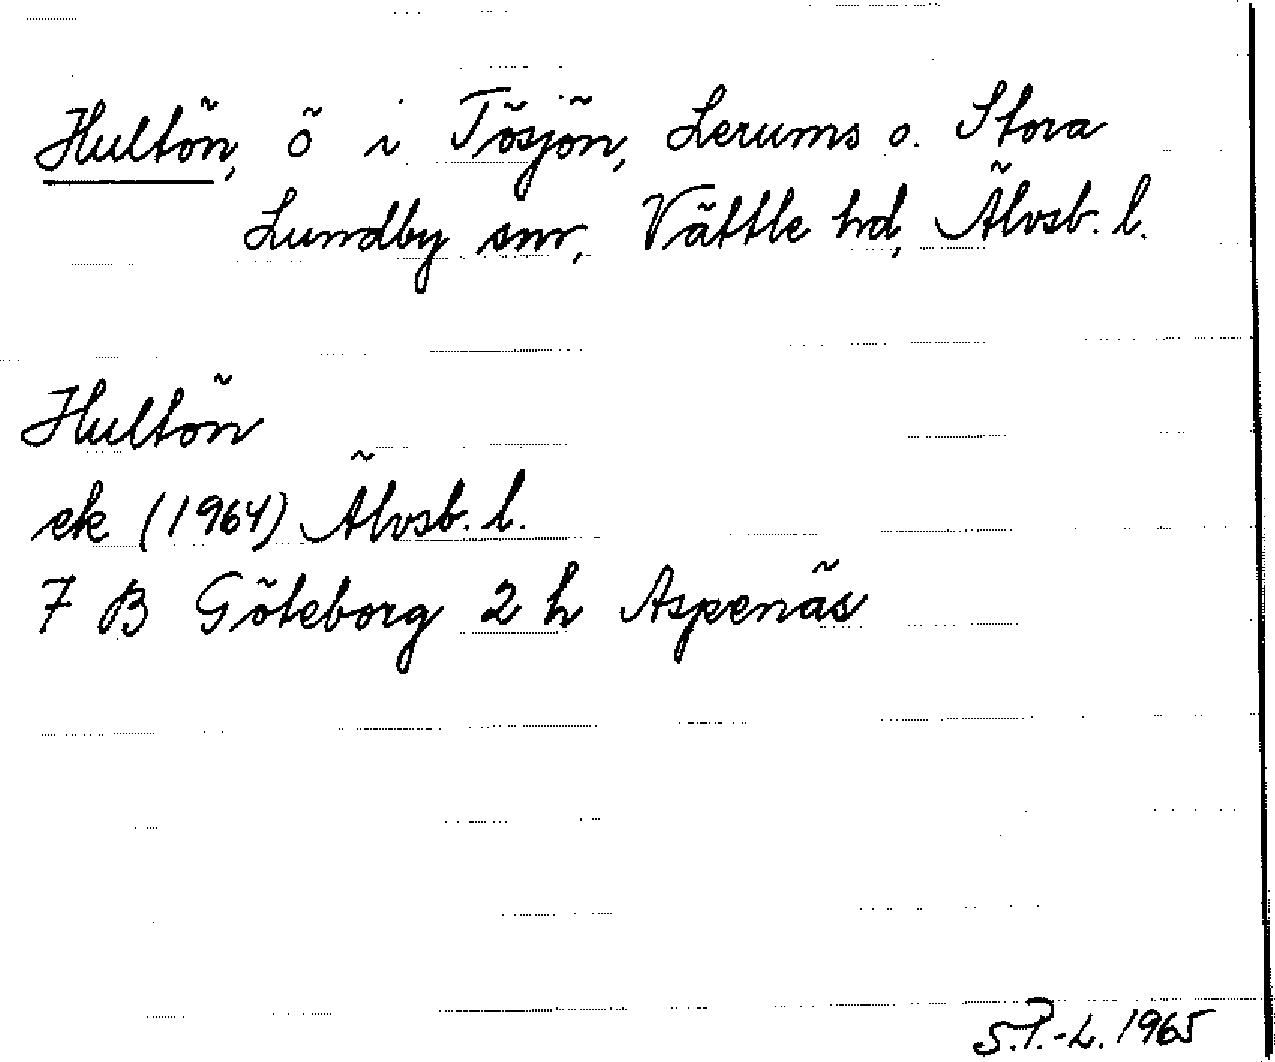 Hultön, ö i Tösjön, Lerums o. Stora
Lundby snr, Vättle hd, Älvsb. l.
Hultön
ek (1964) Älvsb. l.
7 B Göteborg 2 h Aspenäs
S.P.-L. 1965